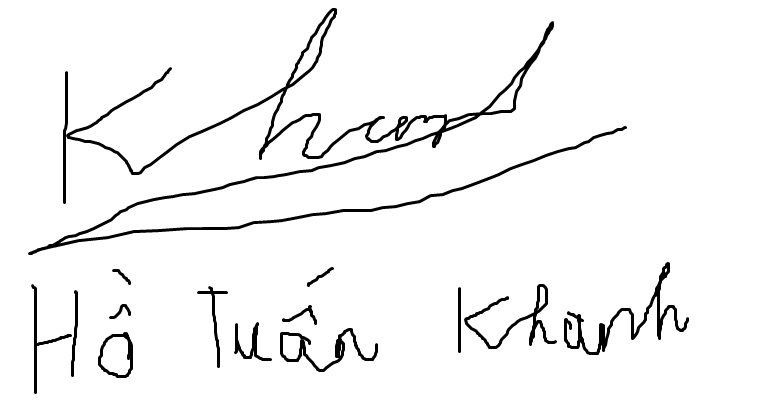 Khanh
Hồ Tuấn Khanh